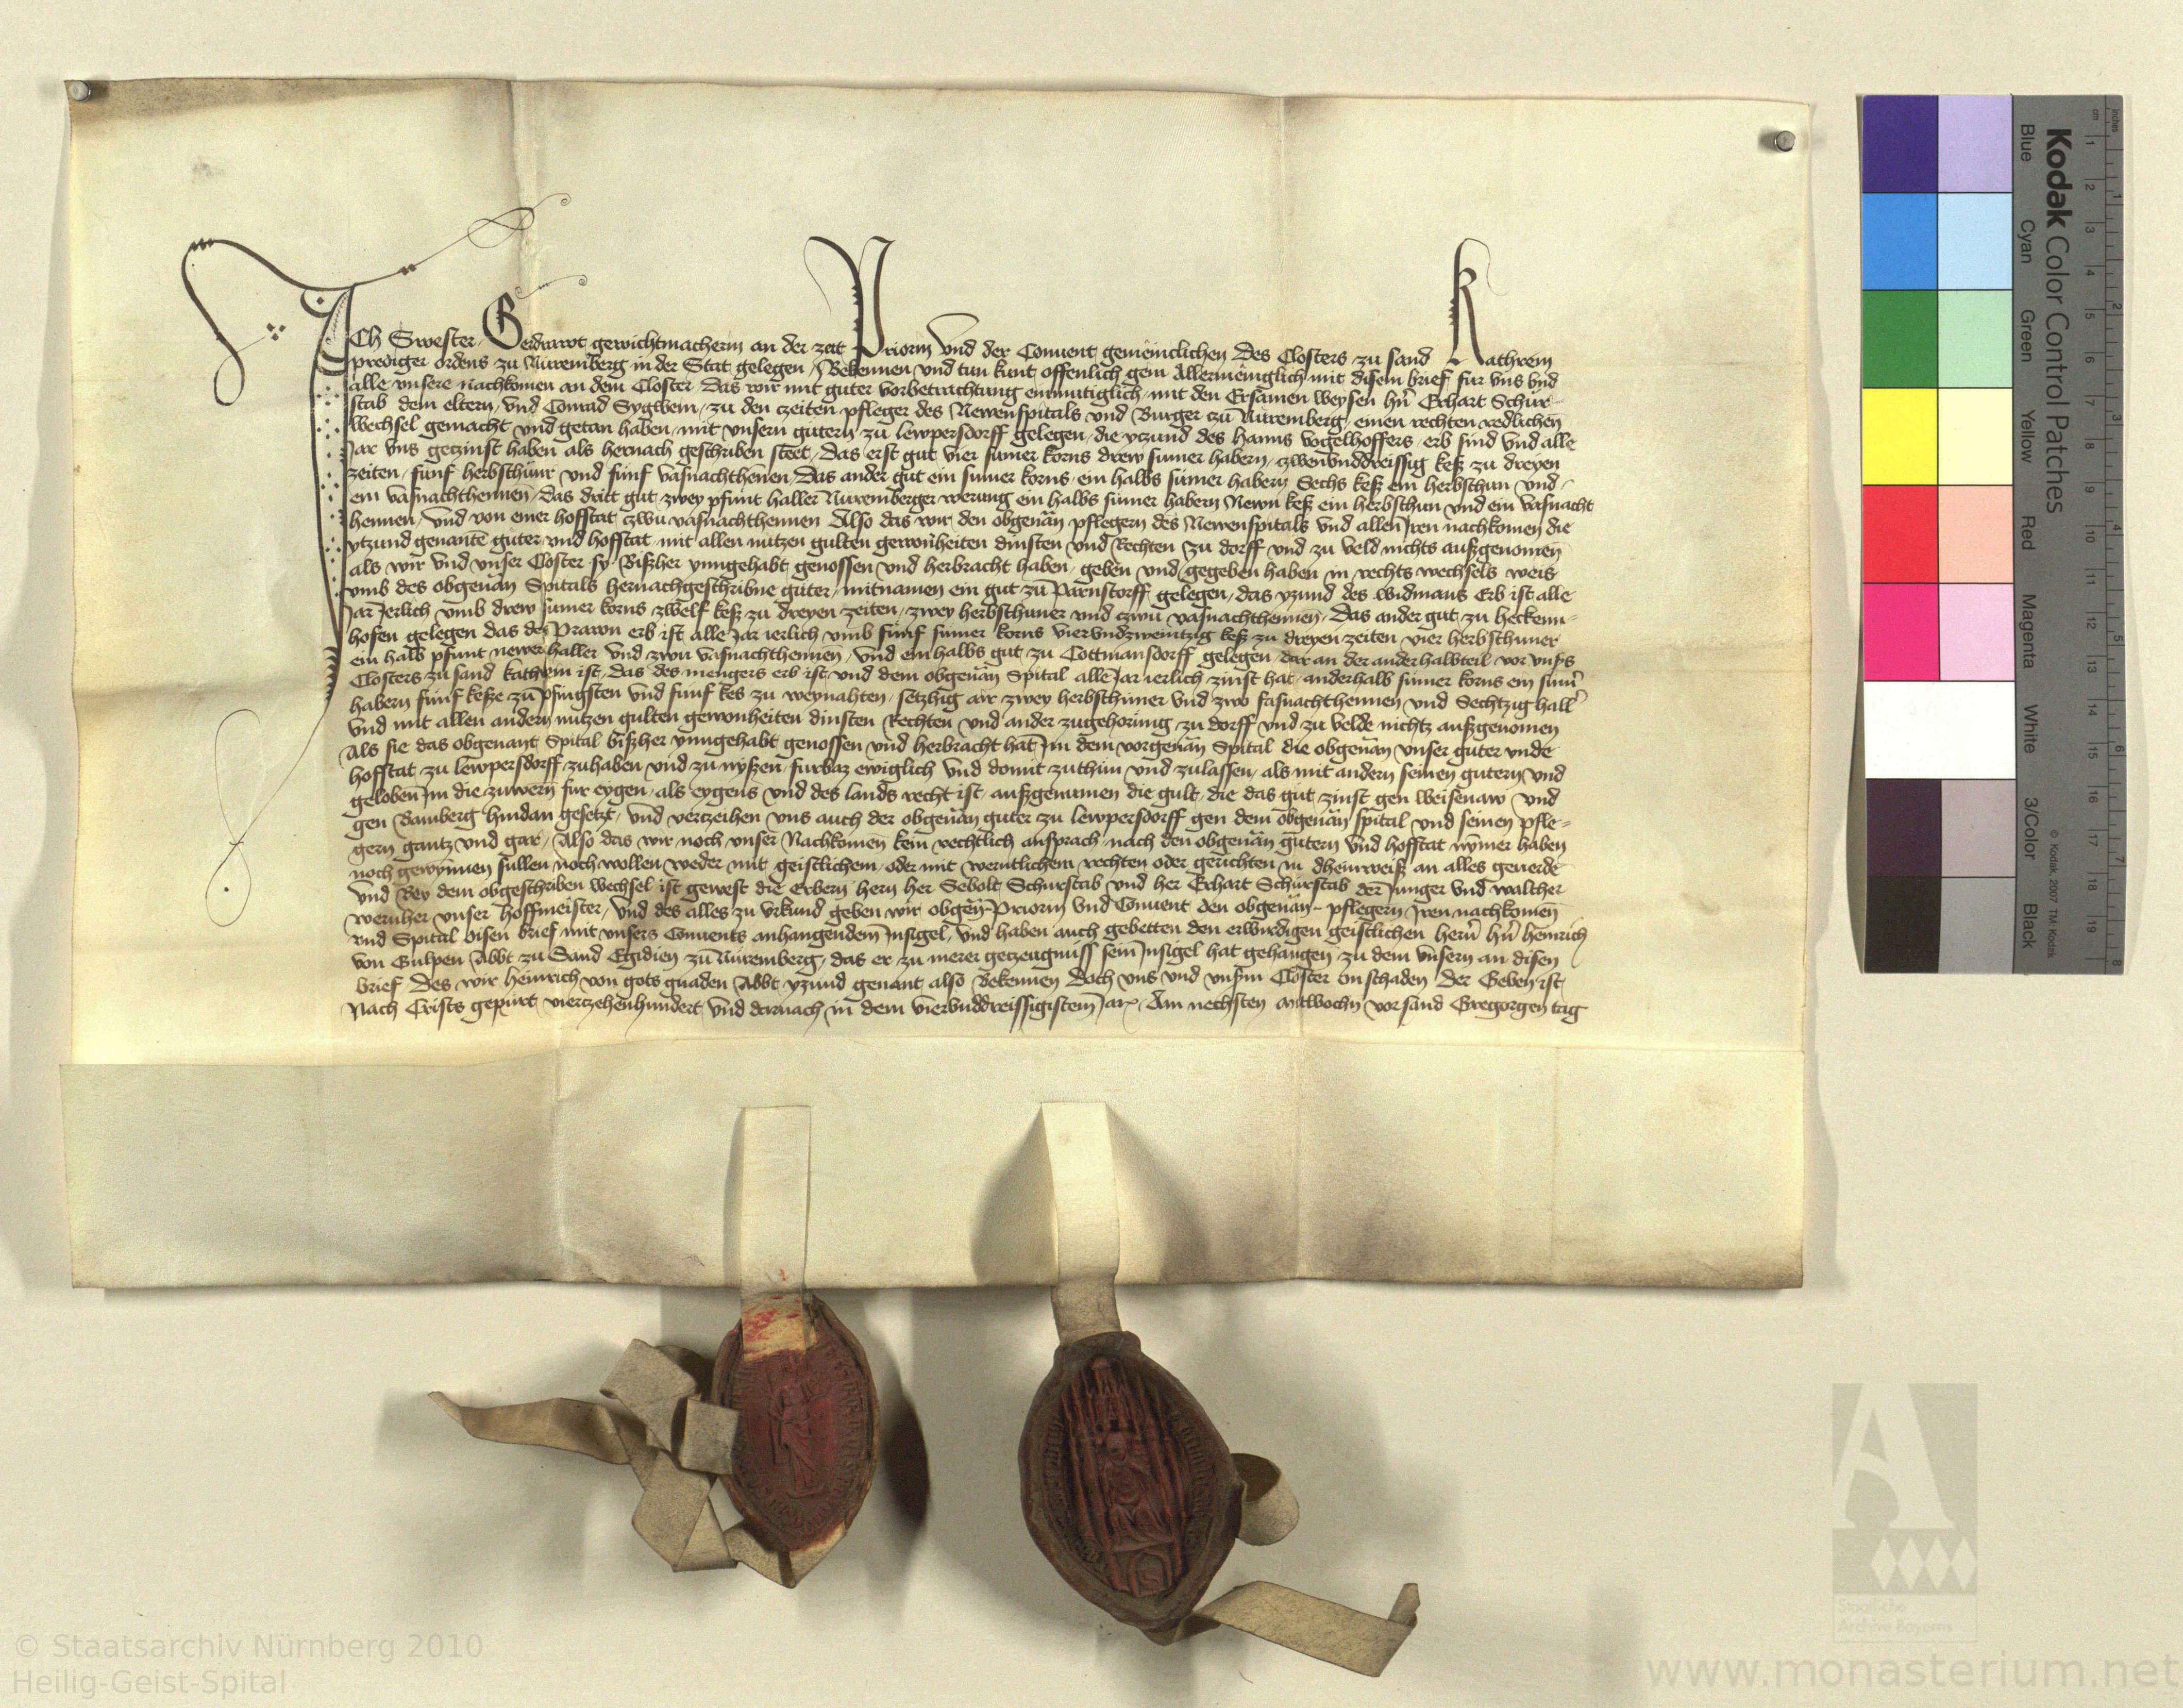 ICh Swester Gerdrawt gewichtmacherin an der zeit Priorin Vnd der Conuent gemeinclichen Des Closters zu sand Kathrein
prediger ordens zu Nuremberg in der Stat gelegen / Bekennen vnd tun kunt offenlich gein Allermeniglich mit disem brief fur vns vnd
alle vnsere nachkomen an dem Closter Das wir mit guter vorbetrachtung einmutiglich mit den Ersamen weysen hn̄ Erhart Schür-
stab dem eltern / vnd Conrad Sygwein / zu den czeiten pfleger des Newenspitals vnd Burger czu Nuremberg / einen rechten redlichen
Wechsel gemacht vnd getan haben / mit vnsern gutern zu lewpersdorff gelegen / die yczund des hanns vogelhoffers erb sind vnd alle
Jar vns geczinst haben als hernach geschriben steet / Das erst gut vier sumer korns drew sumer habern / zwenvnddreissig keß zu dreyen
zeiten / funf herbschunr vnd funf vasnachthenen / Das ander gut ein sumer korns / ein halbs sumer habern Sechs keß ein herbschun vnd
ein vasnachthennen / Das dritt gut / zwey pfunt haller Nuremberger werung ein halbs sumer habern Newn keß ein herbschun vnd ein vasnacht
hennen / Vnd von einer hofstat zwu vasnachthennen Also das wir den obgenan̄ pflegern des Newenspitals vnd allen Iren nachkomen die
ytzund genante guter vnd hoffstat mit allen nutzen gulten gewonheiten dinsten vnd Rechten zu dorff vnd zu veld nichts außgenomen
als wir vnd vnser Closter sy Bißher ynngehabt genossen vnd herbracht haben / geben vnd gegeben haben in rechts wechsels weis
vmb des obgenan̄ Spitals hernachgeschribne guter / mitnamen ein gut zu Parnstorff gelegen / das yzund des widmans Erb ist alle
Jar Jerlich vmb drew sumer korns zwelf keß zu dreyen zeiten / zwey herbschuner vnd czwu vasnachthennen / Das ander gut zu heckenn-
hofen gelegen das des Prawn erb ist alle Jar ierlich vmb funf sumer korns viervndzweintzig keß zu dreyen zeiten vier herbschuner
ein halb pfunt newer haller vnd zwu vasnachthennen / Vnd ein halbs gut zu Cottmansdorff gelegen / dar an der ander halbteil vor vnsers
Closters zu sand kathrein ist / Das des mengers erb ist / vnd dem obgenan̄ Spital alle Jar ierlich zinst hat / anderhalb sumer korns ein sum̄
habern funf keße zu pfingsten vnd funf kes zu weynahten / setzhig air zwey herbschuner vnd zwo fasnachthennen vnd Sechtzig hall̄
Vnd mit allen andern nutzen gulten gewonheiten dinsten Rechten vnd ander zugehorung / zu dorff vnd zu velde nichtz außgenomen
Als sie das obgenant Spital bißher ynngehabt genossen vnd herbracht hat Im dem vorgenan̄ Spital die obgenan̄ vnser guter vnde
hoffstat zu lewpersdorff zuhaben vnd zu nyßen / furbaz ewiglich vnd domit zuthun vnd zulassen / als mit andern seinen gutern vnd
geloben Im die zuwern fur eygen / als eygens vnd des lands recht ist / außgenumen die gult / die das gut zinst gen Weisenaw vnd
gen Bamberg hindan gesetzt / Vnd verczeihen vns auch der obgenan̄ guter zu lewpersdorff gen dem obgenan̄ spital vnd seinen pfle-
gern gantz vnd gar / Also das wir noch vnser Nachkomen kein rechtlich ansprach nach den obgenan̄ gutern Vnd hoffstat nymer haben
noch gewynnen sullen noch wollen weder mit geistlichem oder mit werntlichem rechten oder gerichten in dheinweiß an alles geuerde
Vnd Bey dem obgeschriben wechsel ist gewest die Erbern hern her Sebolt Schurstab vnd her Erhart Schurstab der Junger vnd walther
wernher vnser hoffmeister / Vnd des alles zu vrkund geben wir obgen̄ Priorin vnd Conuent den obgenan̄ pflegern Iren nachkomen
vnd Spital disen brief mit vnsers Conuents anhangendem Insigel / Vnd haben auch gebetten den erwirdigen geistlichen hern̄ hn̄ heinrich
von Gulpen Abbt zu Sand Egidien zu Nuremberg / das er zu merer geczeugnuss sein Insigel hat gehangen zu dem vnsern an disen
brief Des wir heinrich von gots gnaden Abbt yzund genant also Bekennen Doch vns vnd vnserm Closter on schaden Der Geben ist
Nach Crists gepurt vierczehenhundert vnd darnach in dem viervnddreissigistem Jar / Am nechsten mitwochn vor sand Gregorgen tag
Kodak Color Control Patches
Blue Cyan Green Yellow Red Magenta White 3/Color Black
© Kodak, 2007 TM: Kodak
© Staatsarchiv Nürnberg 2010
Heilig-Geist-Spital
Staatliche
Archive Bayerns
www.monasterium.net